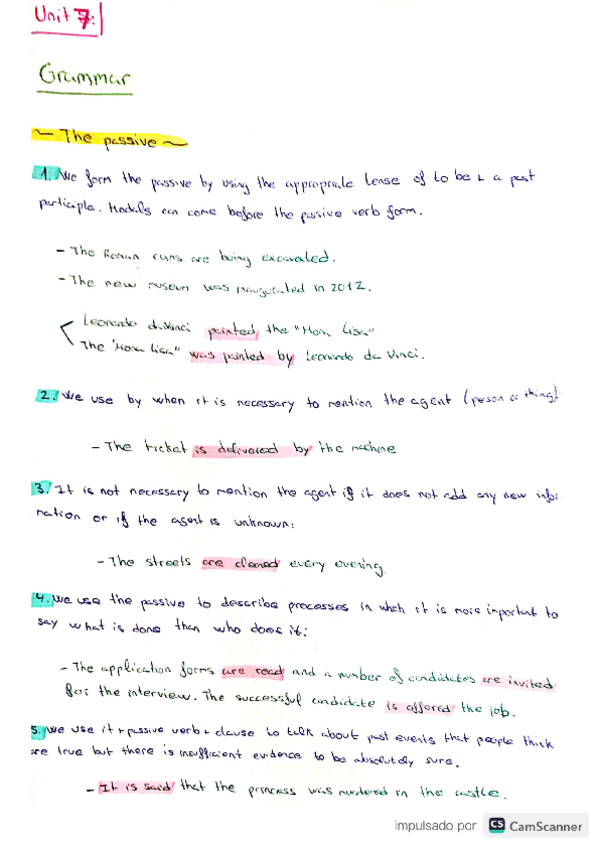 Unit 7:
Grammar
~ The passive ~
1. We form the passive by using the appropriate tense of to be + a past
participle. Modals can come before the passive verb form.
- The Roman runs are being excavated.
- The new museum was inaugurated in 2012.
Leonardo da Vinci painted the "Mona Lisa"
The "Mona Lisa" was painted by Leonardo da Vinci.
2. We use by when it is necessary to mention the agent (person or thing)
- The ticket is delivered by the machine
3. It is not necessary to mention the agent if it does not add any new infor-
mation or if the agent is unknown:
- The streets are cleaned every evening.
4. We use the passive to describe processes in which it is more important to
say what is done than who does it:
- The application forms are read and a number of candidates are invited
for the interview. The successful candidate is offered the job.
5. We use it + passive verb + clause to talk about past events that people think
are true but there is insufficient evidence to be absolutely sure.
- It is said that the princess was murdered in the castle.
impulsado por CS CamScanner